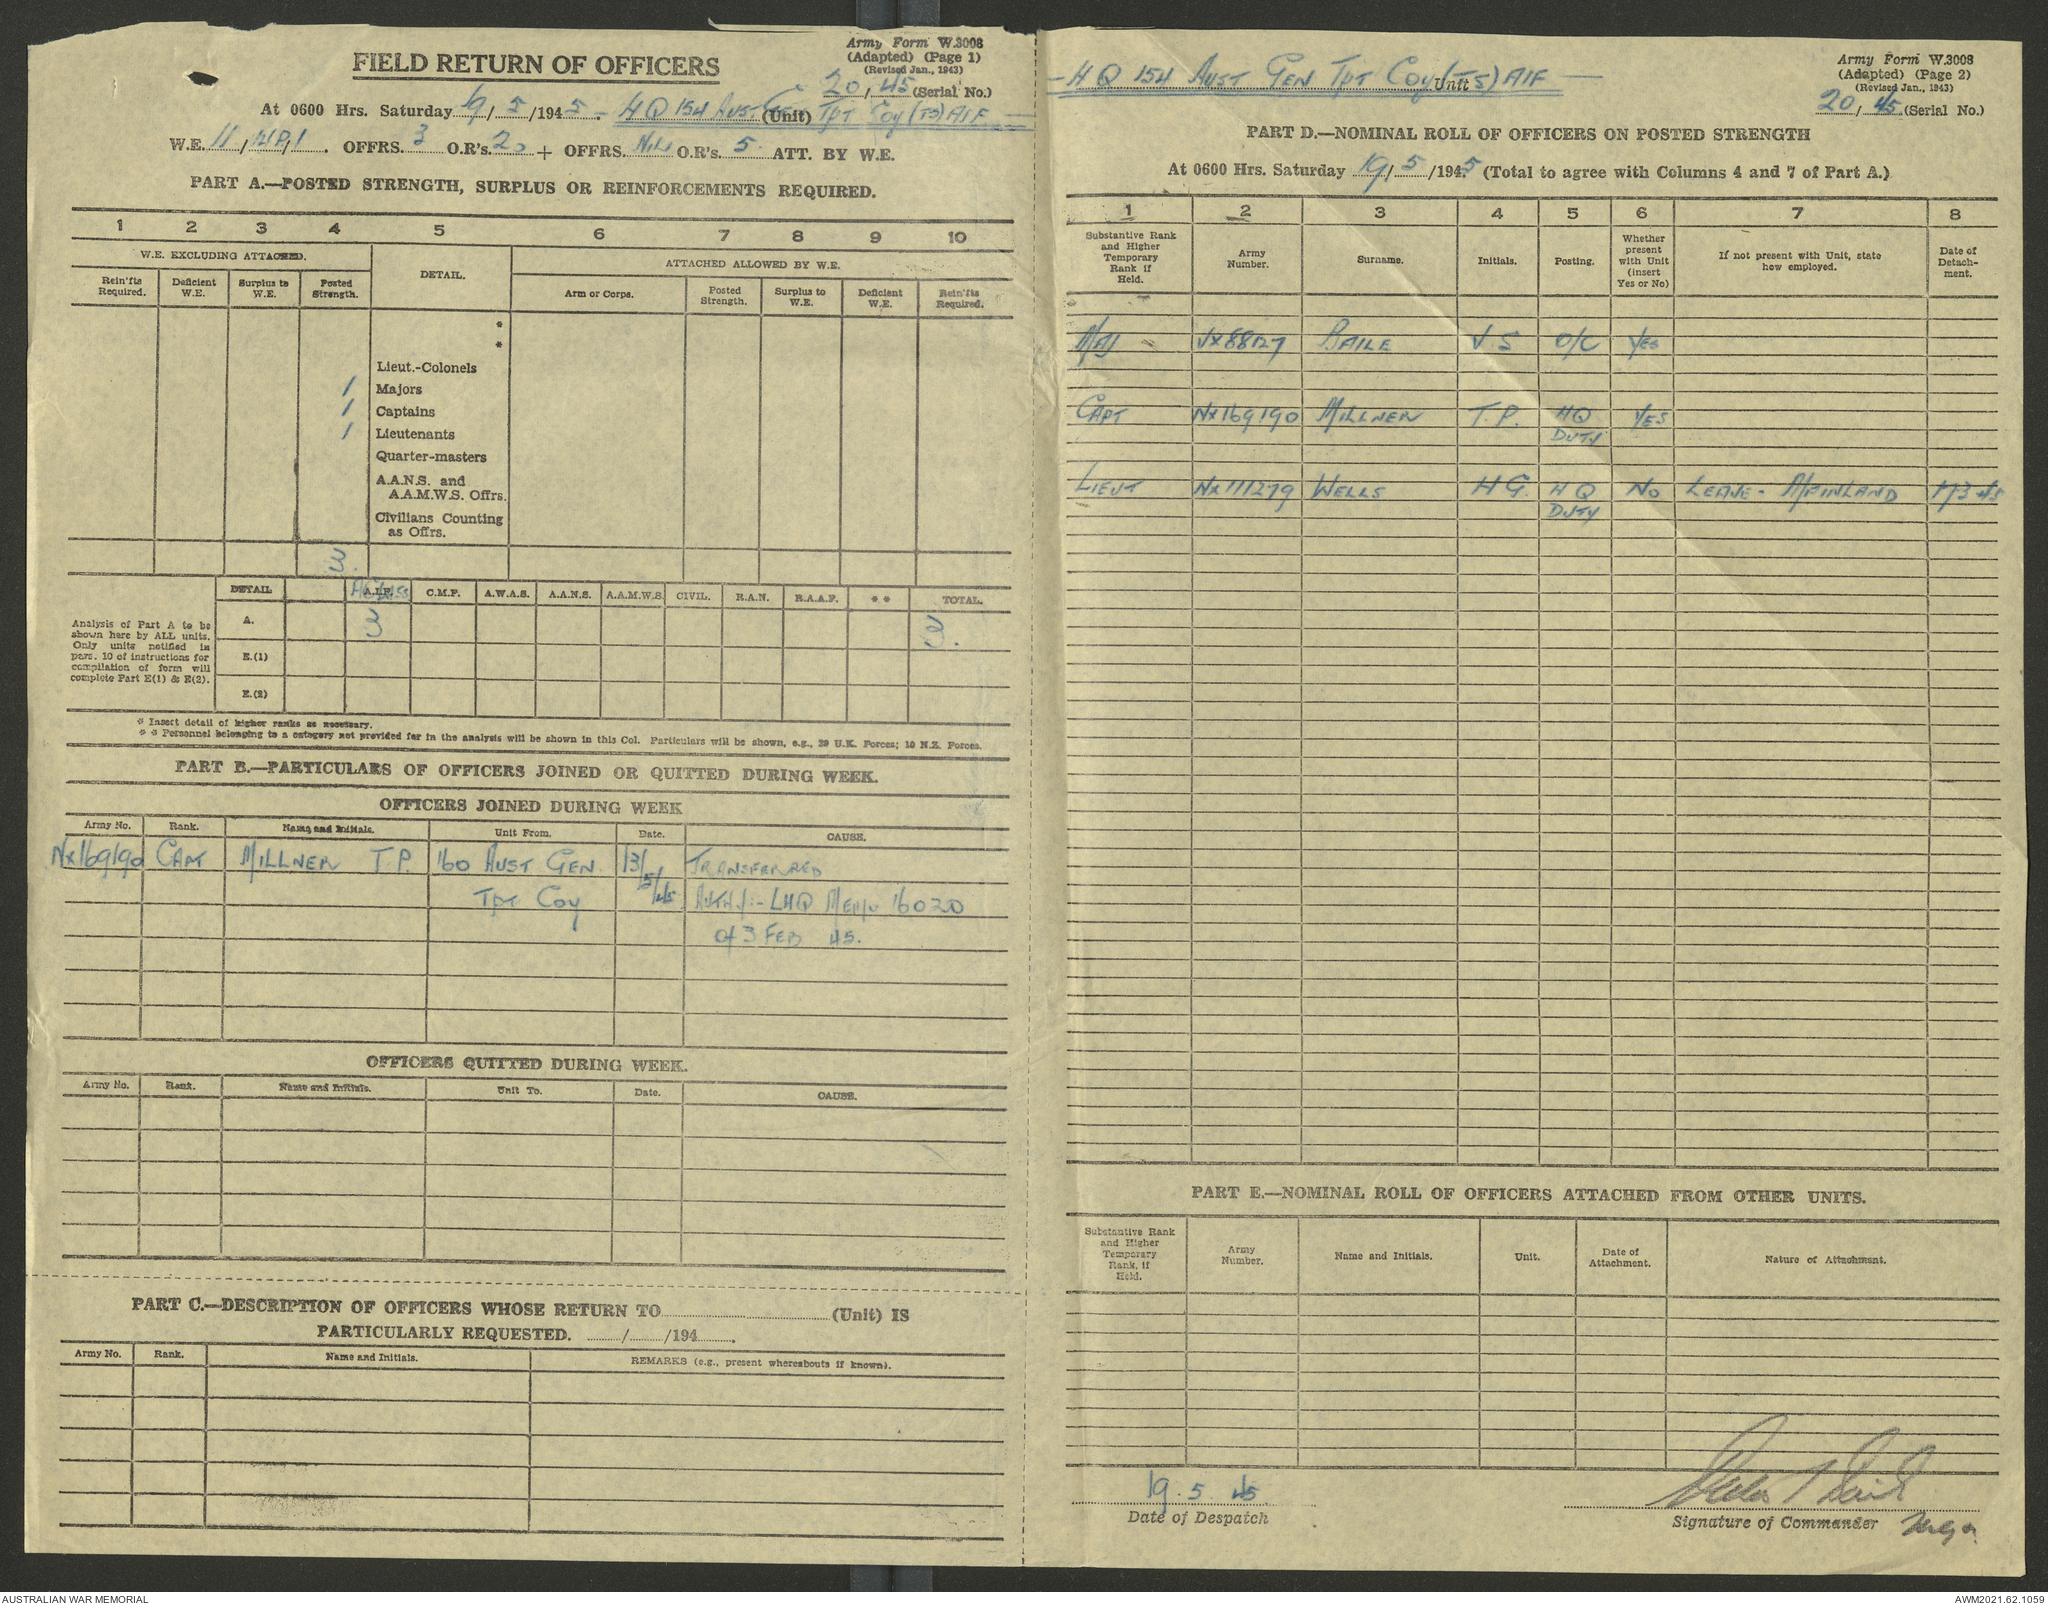 FIELD RETURN OF OFFICERS
Army Form W.3008
(Adapted) (Page 1)
(Revised Jan., 1943)
20/45 (Serial No.)
At 0600 Hrs. Saturday 19/5/1945. - HQ 154 Aust Gen (Unit) Tpt Coy (TS) AIF -
W.E. 11/ /1. OFFRS. 3 O.R's. 20 + OFFRS. Nil O.R's. 5. ATT. BY W.E.
PART A.—POSTED STRENGTH, SURPLUS OR REINFORCEMENTS REQUIRED.
1 2 3 4 5 6 7 8 9 10
W.E. EXCLUDING ATTACHED. DETAIL. ATTACHED ALLOWED BY W.E.
Rein'fts Required. Deficient W.E. Surplus to W.E. Posted Strength. Arm or Corps. Posted Strength. Surplus to W.E. Deficient W.E. Rein'fts Required.
*
*
Lieut.-Colonels
1 Majors
1 Captains
1 Lieutenants
Quarter-masters
A.A.N.S. and
A.A.M.W.S. Offrs.
Civilians Counting
as Offrs.
3.
DETAIL A.I.F. C.M.F. A.W.A.S. A.A.N.S. A.A.M.W.S. CIVIL. R.A.N. R.A.A.F. * * TOTAL.
Analysis of Part A to be shown here by ALL units. Only units notified in pars. 10 of instructions for compilation of form will complete Part E(1) & E(2).
A. 3 3.
E.(1)
E.(2)
* Insert detail of higher ranks as necessary.
* * Personnel belonging to a category not provided for in the analysis will be shown in this Col. Particulars will be shown, e.g., 29 U.K. Forces; 10 N.Z. Forces.
PART B.—PARTICULARS OF OFFICERS JOINED OR QUITTED DURING WEEK.
OFFICERS JOINED DURING WEEK
Army No. Rank. Name and Initials. Unit From. Date. CAUSE.
NX169190 CAPT MILLNER T.P. 160 AUST GEN. 13/5/45 TRANSFERRED
TPT COY AUTHY:- LHQ MEMO 16020
of 3 FEB 45.
OFFICERS QUITTED DURING WEEK.
Army No. Rank. Name and Initials. Unit To. Date. CAUSE.
PART C.—DESCRIPTION OF OFFICERS WHOSE RETURN TO (Unit) IS
PARTICULARLY REQUESTED. / /194 .
Army No. Rank. Name and Initials. REMARKS (e.g., present whereabouts if known).
- HQ 154 AUST GEN TPT COY Unit (TS) AIF -
Army Form W.3008
(Adapted) (Page 2)
(Revised Jan., 1943)
20/45. (Serial No.)
PART D.—NOMINAL ROLL OF OFFICERS ON POSTED STRENGTH
At 0600 Hrs. Saturday 19/5/1945 (Total to agree with Columns 4 and 7 of Part A.)
1 2 3 4 5 6 7 8
Substantive Rank and Higher Temporary Rank if Held. Army Number. Surname. Initials. Posting. Whether present with Unit (insert Yes or No) If not present with Unit, state how employed. Date of Detachment.
MAJ VX88127 BAILE V.S O/C YES
CAPT NX169190 MILLNER T.P. HQ YES
DUTY
LIEUT NX111279 WELLS H G. HQ NO LEAVE - MAINLAND
DUTY
PART E.—NOMINAL ROLL OF OFFICERS ATTACHED FROM OTHER UNITS.
Substantive Rank and Higher Temporary Rank, if Held. Army Number. Name and Initials. Unit. Date of Attachment. Nature of Attachment.
19. 5. 45
Date of Despatch
Signature of Commander
AUSTRALIAN WAR MEMORIAL
AWM2021.62.1059